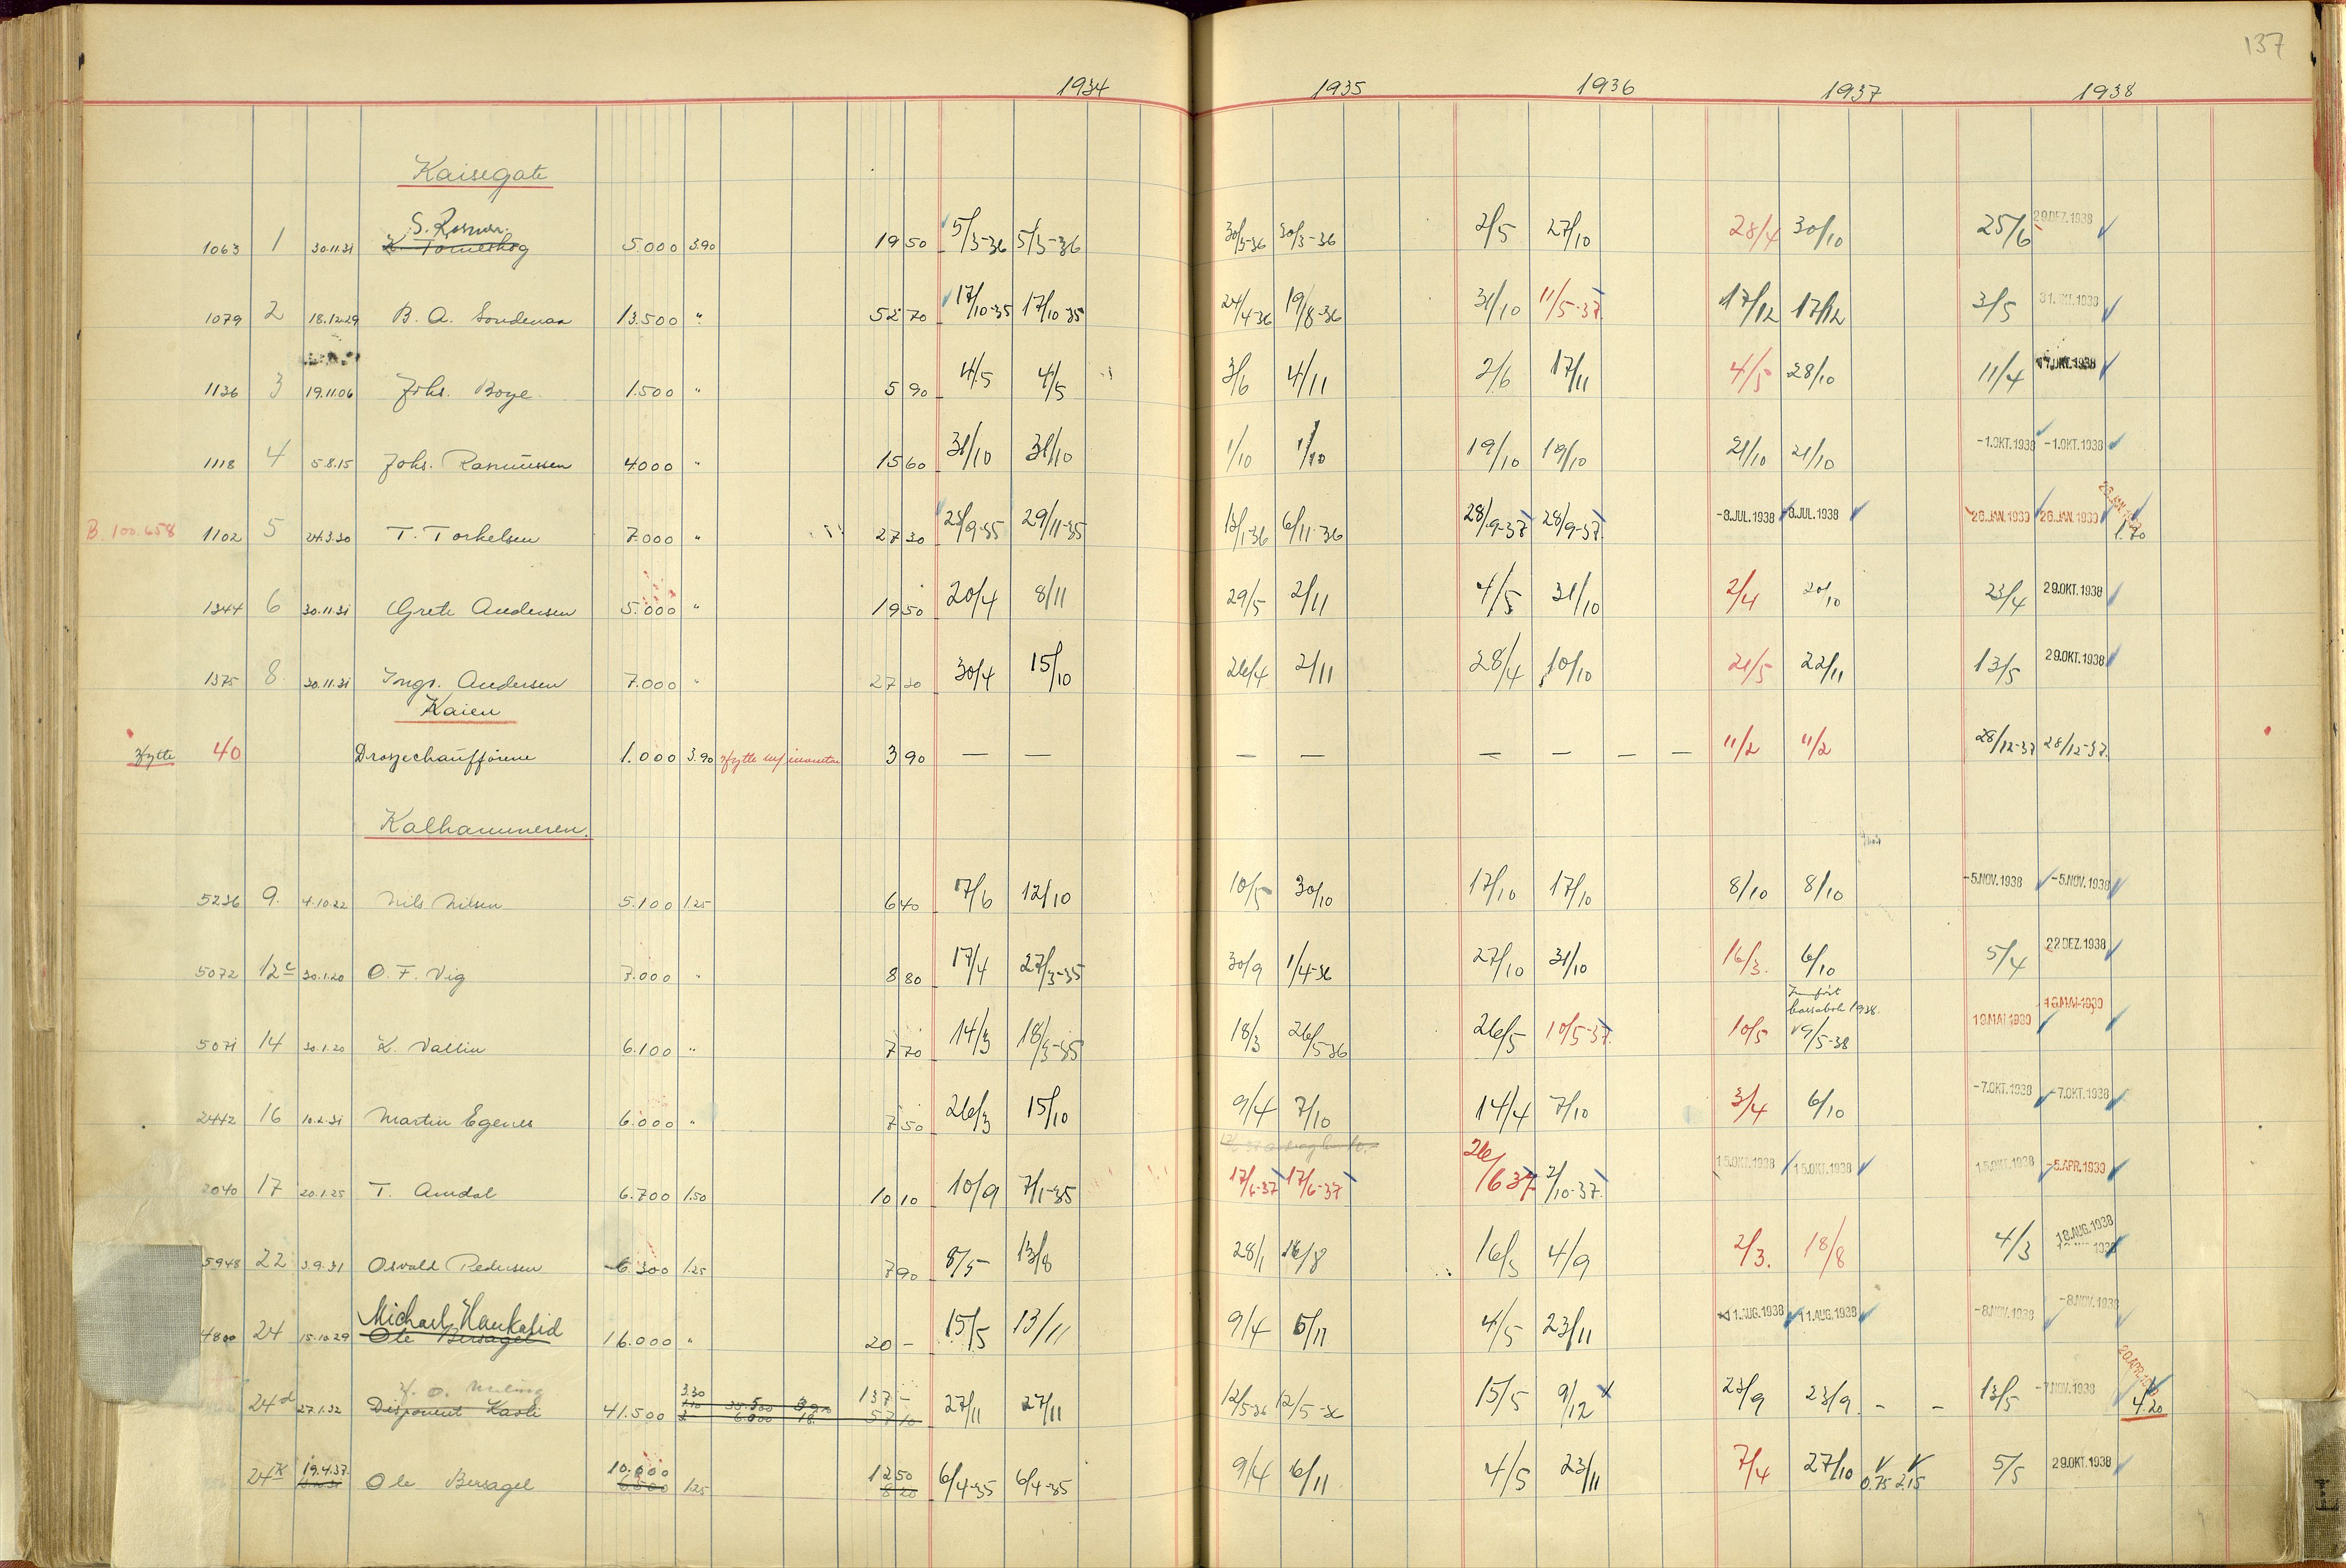 137
1934 1935 1936 1937 1938
Kaisegate
S. Rosnes.
1063 1 30.11.31 K. Torneskog 5.000 3.90 19 50 5/3-36 5/3-36 30/3-36 30/3-36 2/5 27/10 28/4 30/10 25/6 29.DEZ.1938
1079 2 18.12.29 B. A. 13.500 " 52 70 17/10-35 17/10-35 24/4-36 19/8-36 31/10 11/5-37 17/12 17/12 3/5 31.OKT.1938
1136 3 19.11.06 Johs. Boye 1.500 " 5 90 4/5 4/5 3/6 4/11 2/6 17/11 4/5 28/10 11/4 17.OKT.1938
1118 4 5.8.15 Johs. Rasmussen 4.000 " 15 60 31/10 31/10 1/10 1/10 19/10 19/10 21/10 21/10 -1.OKT.1938 -1.OKT.1938
B. 100.658 1102 5 24.3.30 T. Torkelsen 7.000 " 27 30 29/11-35 6/11-36 28/9-37 28/9-37 -8.JUL.1938 -8.JUL.1938 26.JAN.1939 26.JAN.1939 1.70
1344 6 30.11.31 Grete Andersen 5.000 " 19 50 20/4 8/11 29/5 2/11 4/5 31/10 2/4 20/10 23/4 29.OKT.1938
1375 8 30.11.31 Ingr. Andersen 7.000 " 27 30 30/4 15/10 26/4 2/11 28/4 10/10 21/5 22/11 13/5 29.OKT.1938
Kaien
Hytte 40 Droschechaufførene 1.000 3.90 Hytte m/inventar 3 90 — — — — — — — — 11/2 11/2 28/12-37 28/12-37.
Kalhammeren.
5236 9. 4.10.22 Nils Nilsen 5.100 1.25 6 40 7/6 12/10 10/5 30/10 17/10 17/10 8/10 8/10 -5.NOV.1938 -5.NOV.1938
5072 12c 30.1.20 O. F. Vig 7.000 " 8 80 17/4 27/3-35 30/9 1/4-36 27/10 31/10 16/3. 6/10 5/4 22.DEZ.1938
1938.
5071 14 30.1.20 K. Vallin 6.100 " 7 70 14/3 18/3-35 18/3 26/5-36 26/5 10/5-37. 10/5 19/5-38
2442 16 10.2.31 Martin Egenes 6.000 " 7 50 26/3 15/10 9/4 7/10 14/4 7/10 3/4 6/10 -7.OKT.1938 -7.OKT.1938
2040 17 20.1.25 T. Amdal 6.700 1.50 10 10 10/9 7/1-35 17/6-37 17/6-37 26/6 37 2/10-37. 15.OKT.1938 15.OKT.1938 15.OKT.1938 -5.APR.1939
5948 22 3.9.31 Osvald Pedersen 6.300 1.25 7 90 8/5 13/8 28/1 16/8 16/3 4/9 2/3. 18/8 4/3 18.AUG.1938
Michael Haukalid
4800 24 15.10.29 Ole Bersagel 16.000 " 20 - 15/5 13/11 9/4 6/11 4/5 23/11 11.AUG.1938 11.AUG.1938 -8.NOV.1938 -8.NOV.1938
O. Meling
24d 27.1.32 Disponent Kasli 41.500 3.30 137 - 57 10 27/11 27/11 12/5-36 12/5-36 15/5 9/12 23/9 23/9 - - 13/5 -7.NOV.1938 4.20
24k 19.4.37. Ole Bersagel 10.000 6.500 1.25 12 50 8 20 6/4-35 6/4-35 9/4 6/11 4/5 23/11 7/4 27/10 0.75 2.15 5/5 29.OKT.1938